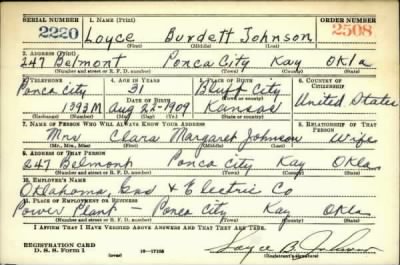 SERIAL NUMBER 1. NAME (Print) ORDER NUMBER
2220 Loyce Burdett Johnson 2508
(First) (Middle) (Last)
2. ADDRESS (Print)
247 Belmont Ponca City Kay Okla
(Number and street or R. F. D. number) (Town) (County) (State)
3. TELEPHONE 4. AGE IN YEARS 5. PLACE OF BIRTH 6. COUNTRY OF CITIZENSHIP
Ponca City 31 Bluff City
(Exchange) DATE OF BIRTH (Town or county) United States
1393M Aug 22-1909 Kansas
(Number) (Mo.) (Day) (Yr.) (State or country)
7. NAME OF PERSON WHO WILL ALWAYS KNOW YOUR ADDRESS 8. RELATIONSHIP OF THAT PERSON
Mrs Clara Margaret Johnson Wife
(Mr., Mrs., Miss) (First) (Middle) (Last)
9. ADDRESS OF THAT PERSON
247 Belmont Ponca City Kay Okla.
(Number and street or R. F. D. number) (Town) (County) (State)
10. EMPLOYER'S NAME
Oklahoma Gas & Electric Co
11. PLACE OF EMPLOYMENT OR BUSINESS
Power Plant - Ponca City Kay Okla.
(Number and street or R. F. D. number) (Town) (County) (State)
I AFFIRM THAT I HAVE VERIFIED ABOVE ANSWERS AND THAT THEY ARE TRUE.
REGISTRATION CARD
D. S. S. Form 1 (over) Loyce B. Johnson
(Registrant's signature)